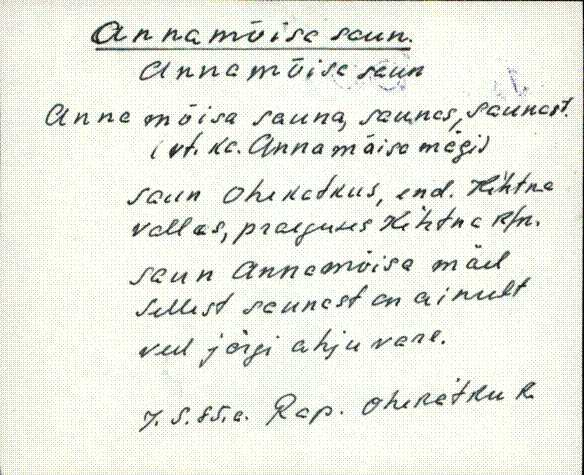 Annamõisa saun.
Annamõisa saun
Annamõisa sauna, saunas, saunast.
(vt. ka. Annamõisa mägi)
saun Ohekatkus, end. Kehtna
vallas, praeguses Kehtna k/n.
saun Annamõisa mäel
Sellest saunast on ainult
veel järgi ahjuvare.
7. 5. 85.a. Rap. Ohekatku k.